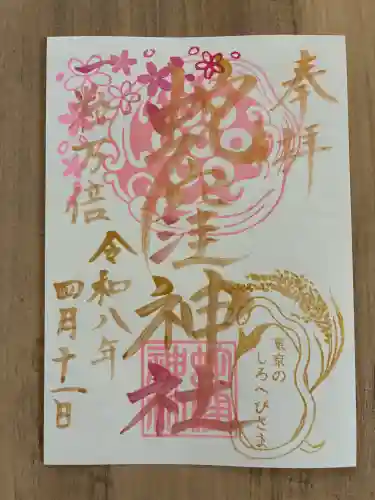 奉拝
蛇窪神社
東京の
しろへびさま
一粒万倍
令和八年
四月十一日